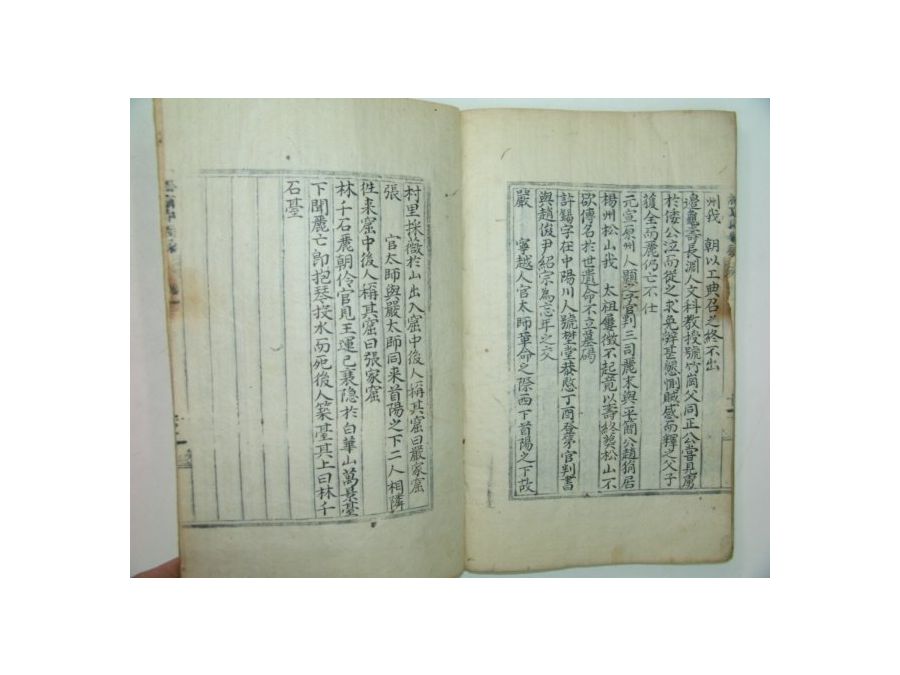 州我 朝以工典召之終不出
邊龜壽長淵人文科教授號竹崗父同正公嘗見虜
於倭公泣而從之求免辭甚懇惻賊感而釋之父子
獲全而麗仍亡不仕
元宣原州人顥子官判三司麗末與平簡公趙狷居
楊州松山我 太祖屢徵不起竟以壽終葬松山不
欲傳名於世遺命不立墓碣
許錫字在中陽川人號埜堂恭愍丁酉登第官判書
與趙俊尹紹宗為忘年之交
嚴 寧越人官太師革命之際西下首陽之下散
村里採薇於山出入窟中後人稱其窟曰嚴家窟
張 官太師與嚴太師同來首陽之下二人相隣
徃来窟中後人稱其窟曰張家窟
林千石麗朝伶官見王運已衰隐於白華山萬景臺
下聞麗亡卽抱琴投水而死後人築臺其上曰林千
石臺